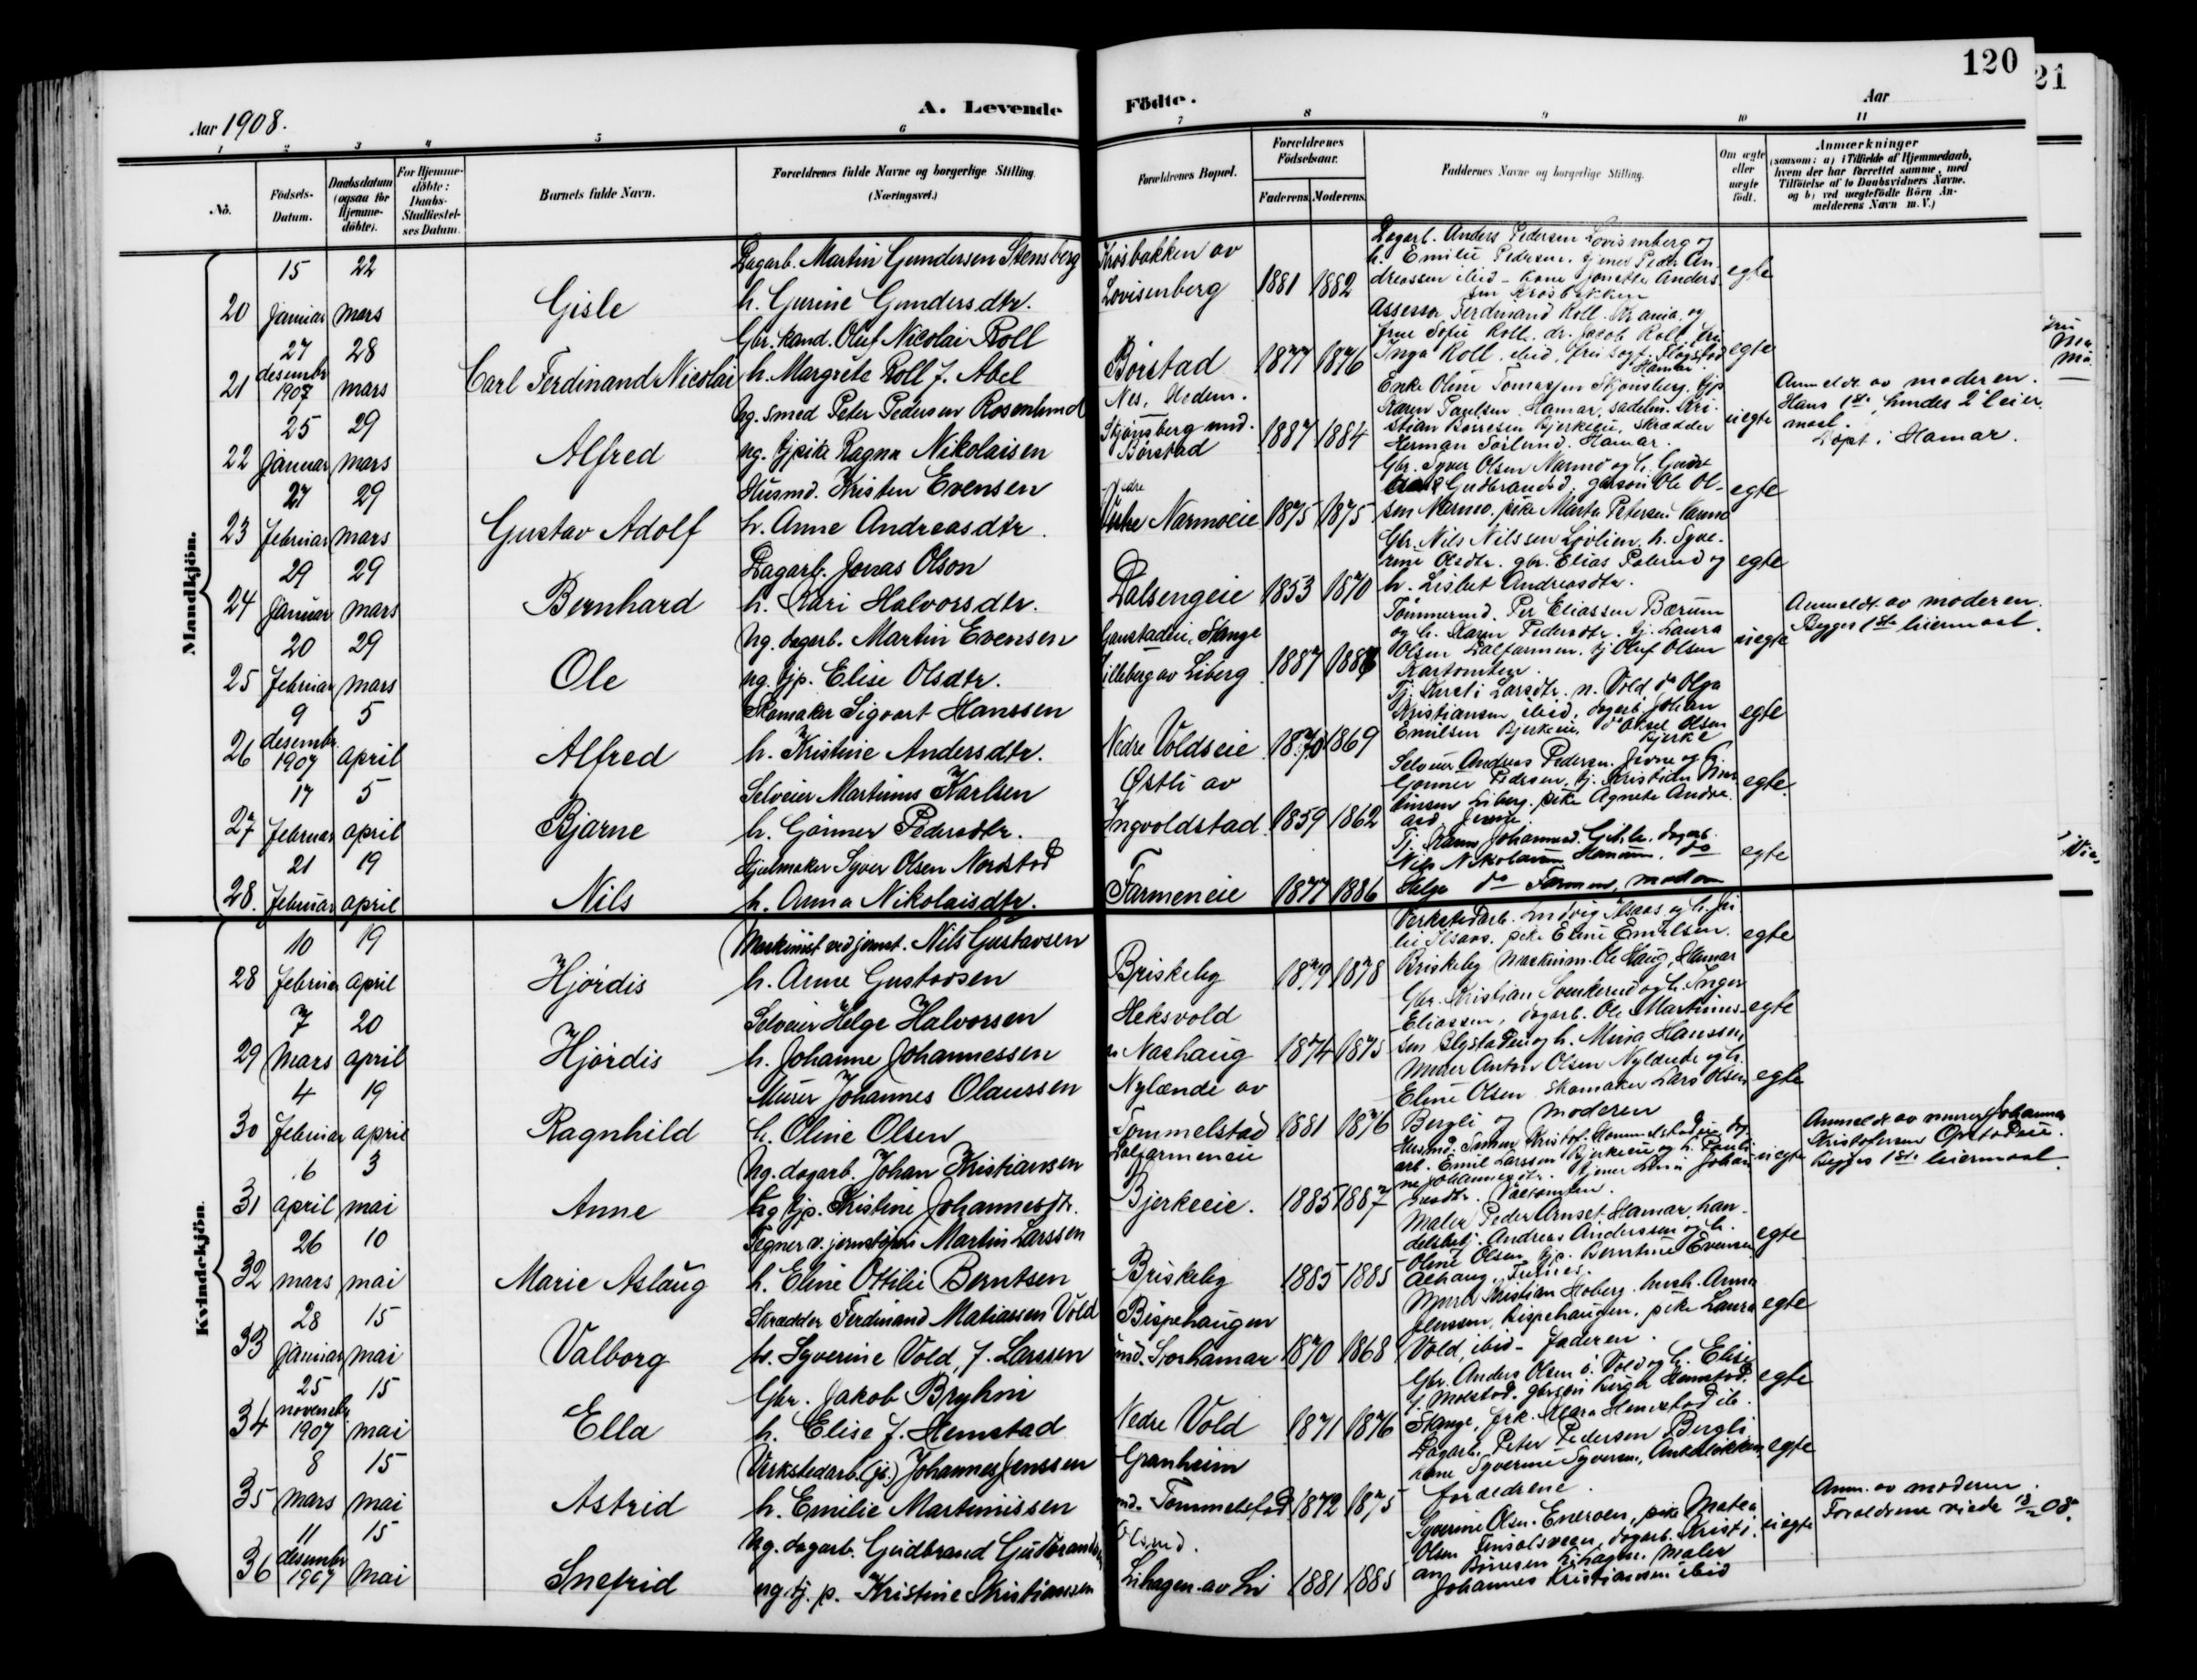 120
21
Aar 1908.
A. Levende
Födte.
Aar
1 2 3 4 5 6 7 8 9 10 11
No.
Födsels-Datum.
Daabsdatum (ogsaa for Hjemme-döbte).
For Hjemme-döbte: Daabs-Stadfæstel-ses Datum.
Barnets fulde Navn.
Forældrenes fulde Navne og borgerlige Stilling. (Næringsvei.)
Forældrenes Bopæl.
Forældrenes Födselsaar.
Faderens. Moderens.
Faddernes Navne og borgerlige Stilling.
Om ægte eller uægte födt.
Anmærkninger
(saasom: a) i Tilfælde af Hjemmedaab, hvem der har forrettet samme, med Tilföielse af to Daabsvidners Navne. og b) ved uægtefödte Börn An-melderens Navn m. V.)
Mandkjön.
20 15 januar 22 mars Gisle
Dagarb. Martin Gundersen Stensberg
h. Gurine Gundersdtr.
Krosbakken av
Lovisenberg 1881 1882
Dagarb. Anders Pedersen Lovisenberg og
h. Emilie Pedersen.
egte
21 27 desembr 1907 28 mars Carl Ferdinand Nicolai
Gbr. kand. Oluf Nicolai Roll
h. Margrete Roll f. Abel
Börstad 1877 1876
Assessor Ferdinand Roll Kr.ania, og
frue Sofie Roll. dr. Jacob Roll, fru
Inga Roll, ibid,
Hamar.
egte
22 25 januar 29 mars Alfred
Ug. smed Peter Pedersen Rosenlund
ug. tjpike Ragna Nikolaisen
Nes, Hedem.
Skjönsberg und.
Börstad 1887 1884
Enke Oline Tomassen Skjönsberg, tjp
Karen Paulsen Hamar, sadelm. Kri-
stian Borresen Bjerkeeie, skrædder
Herman Sörlund. Hamar.
uegte
Anmeldt av moderen.
Hans 1ste, hendes 2 leier
maal.
Döpt i Hamar.
23 27 februar 29 mars Gustav Adolf
Husmd. Kristen Evensen
h. Anne Andreasdtr.
Nedre
Narmoeie 1875 1875
Gbr. Syver Olsen Narmo og h.
Gudbrandsd. gbrsön Ole Ol-
sen Narmo, pike Marte Petersen
egte
24 29 januar 29 mars Bernhard
Dagarb. Jonas Olson
h. Kari Halvorsdtr.
Dalsengeie 1853 1870
Gbr. Nils Nilssen Lövlien, h. Syve-
rine Olsdtr. gbr. Elias
h. Lisbet Andreasdtr.
egte
25 20 februar 29 mars Ole
Ug. dagarb. Martin Evensen
ug. tjp. Elise Olsdtr.
Gaustadeie, Stange
Lilleberg av Liberg 1887 1886
Tömmermd. Per Eliassen Bærum
og h. Karen Pedersdtr. tj. Laura
Olsen Dalfarmen. tj. Oluf Olsen
uegte
Anmeldt av moderen.
Begges 1ste leiermaal.
26 9 desembr. 1907 5 april Alfred
Skomaker Sigvart Hanssen
h. Kristine Andersdtr.
Nedre Voldseie 1870 1869
Tj. Kirsti Larsdtr. n. Vold, do Olga
Kristiansen ibid, dagarb. Johan
Emilsen Bjerkeeie, do Aksel Olsen
Bjerke
egte
27 17 februar 5 april Bjarne
Selveier Martinius Karlsen
h. Gönner Pedersdtr.
Östli av
Ingvoldstad 1859 1862
Selveier Andreas Pedersen Jevne og h.
Gönner Pedersen, tj. Kristian
Liberg, pike Agnete
egte
28. 21 februar 19 april Nils
Hjulmaker Syver Olsen Nordstad
h. Anna Nikolaisdtr.
Farmeneie 1877 1886
Nils Nikolaisen
Helge do Farmen, moderen
egte
Kvindekjön.
28 10 februar 19 april Hjördis
Maskinist ved jernst. Nils Gustavsen
h. Anne Gustavsen
Briskeby 1879 1878
Verkstedarb. Ludvig Ilsaas og h.
Ilsaas. pike Eline Emilsen.
Briskeby Maskinm. Ole Haug, Hamar
egte
29 7 mars 20 april Hjördis
Selveier Helge Halvorsen
h. Johanne Johannessen
Heksvold
n. Nashaug 1874 1875
Gbr. Kristian og h. Inger
Eliassen, dagarb. Ole Martinius-
sen og h. Mina Hanssen,
egte
30 4 februar 19 april Ragnhild
Murer Johannes Olaussen
h. Oline Olsen
Nylænde av
Tommelstad 1881 1876
Murer Anton Olsen Nylænde og h.
Eline Olsen Skomaker Lars Olsen
Bergli og moderen
egte
31 6 april 3 mai Anne
Ug. dagarb. Johan Kristiansen
ug tjp. Kristine Johannesdtr.
Dalfarmeneie
Bjerkeeie. 1885 1887
arb. Emil Larssen Bjerkeeie og h.
uegte
Anmeldt av murer Johannes
Kristofersen Opstadeie.
Begges 1ste leiermaal.
32 26 mars 10 mai Marie Aslaug
Tegner v. jernstöperi Martin Larssen
h. Eline Ottilie Berntsen
Briskeby 1885 1885
Maler Peder Arnset Hamar, han-
delsbetj. Andreas Anderssen og h.
Oline Olsen, tjp. Berntine Evensen
egte
33 28 januar 15 mai Valborg
Skrædder Ferdinand Matiassen Vold
h. Syverine Vold, f. Larssen
Bispehaugen
und. Storhamar 1870 1868
Kristian Hoberg, hush. Anna
Jenssen, Bispehaugen, pike Laura
Vold, ibid – faderen.
egte
34 25 novembr 1907 15 mai Ella
Gbr. Jakob Bryhni
h. Elise f. Hemstad
Nedre Vold 1871 1876
Gbr. Anders Olsen ö. Vold og h. Elise
f. Molstad. gbrsön Birger Hemstad
Stange, frk. Klara Hemstad ib.
egte
35 8 mars 15 mai Astrid
Verkstedarb. (js.) Johannes Jenssen
h. Emilie Martinissen
Granheim
und. Tommelstad 1872 1875
Dagarb. Peter Pedersen Bergli
kone Syverine Syversen,
forældrene.
egte
36 11 desembr 1907 15 mai Snefrid
Ug. dagarb. Gudbrand Gudbrandsen
ug. tj. p. Kristine Kristianssen
Lihagen av Li 1881 1885
Syverine Olsen Eneroen, pike Matea
Olsen dagarb. Kristi-
an Börresen Lihagen. maler
Johannes Kristianssen ibid
uegte
Anm. av moderen.
Forældrene viede 08.